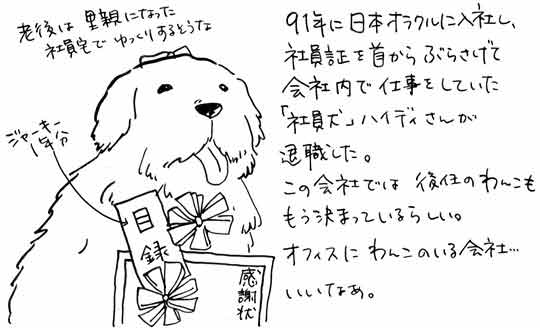 老後は里親になった
社員宅でゆっくりするそうな
ジャーキー
1年分
目録
感謝状
91年に日本オラクルに入社し、
社員証を首からぶらさげて
会社内で仕事をしていた
「社員犬」ハイディさんが
退職した。
この会社では後任のわんこも
もう決まっているらしい。
オフィスにわんこのいる会社…
いいなぁ。